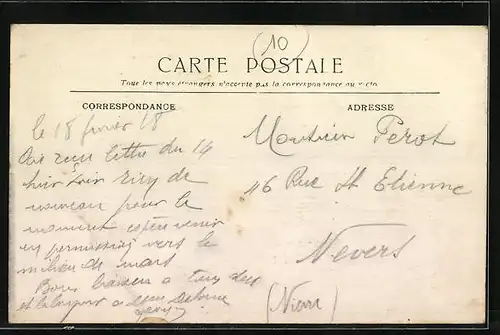 (10)
CARTE POSTALE
Tous les pays étrangers n'acceptent pas la correspondance au recto
CORRESPONDANCE
ADRESSE
le 18 février 18
reçu lettre du 14
hier soir rien de
nouveau pour le
moment espère venir
en permission vers le
milieu de mars
Bons baisers a tous deux
et
Monsieur Perot
46 Rue St Etienne
Nevers